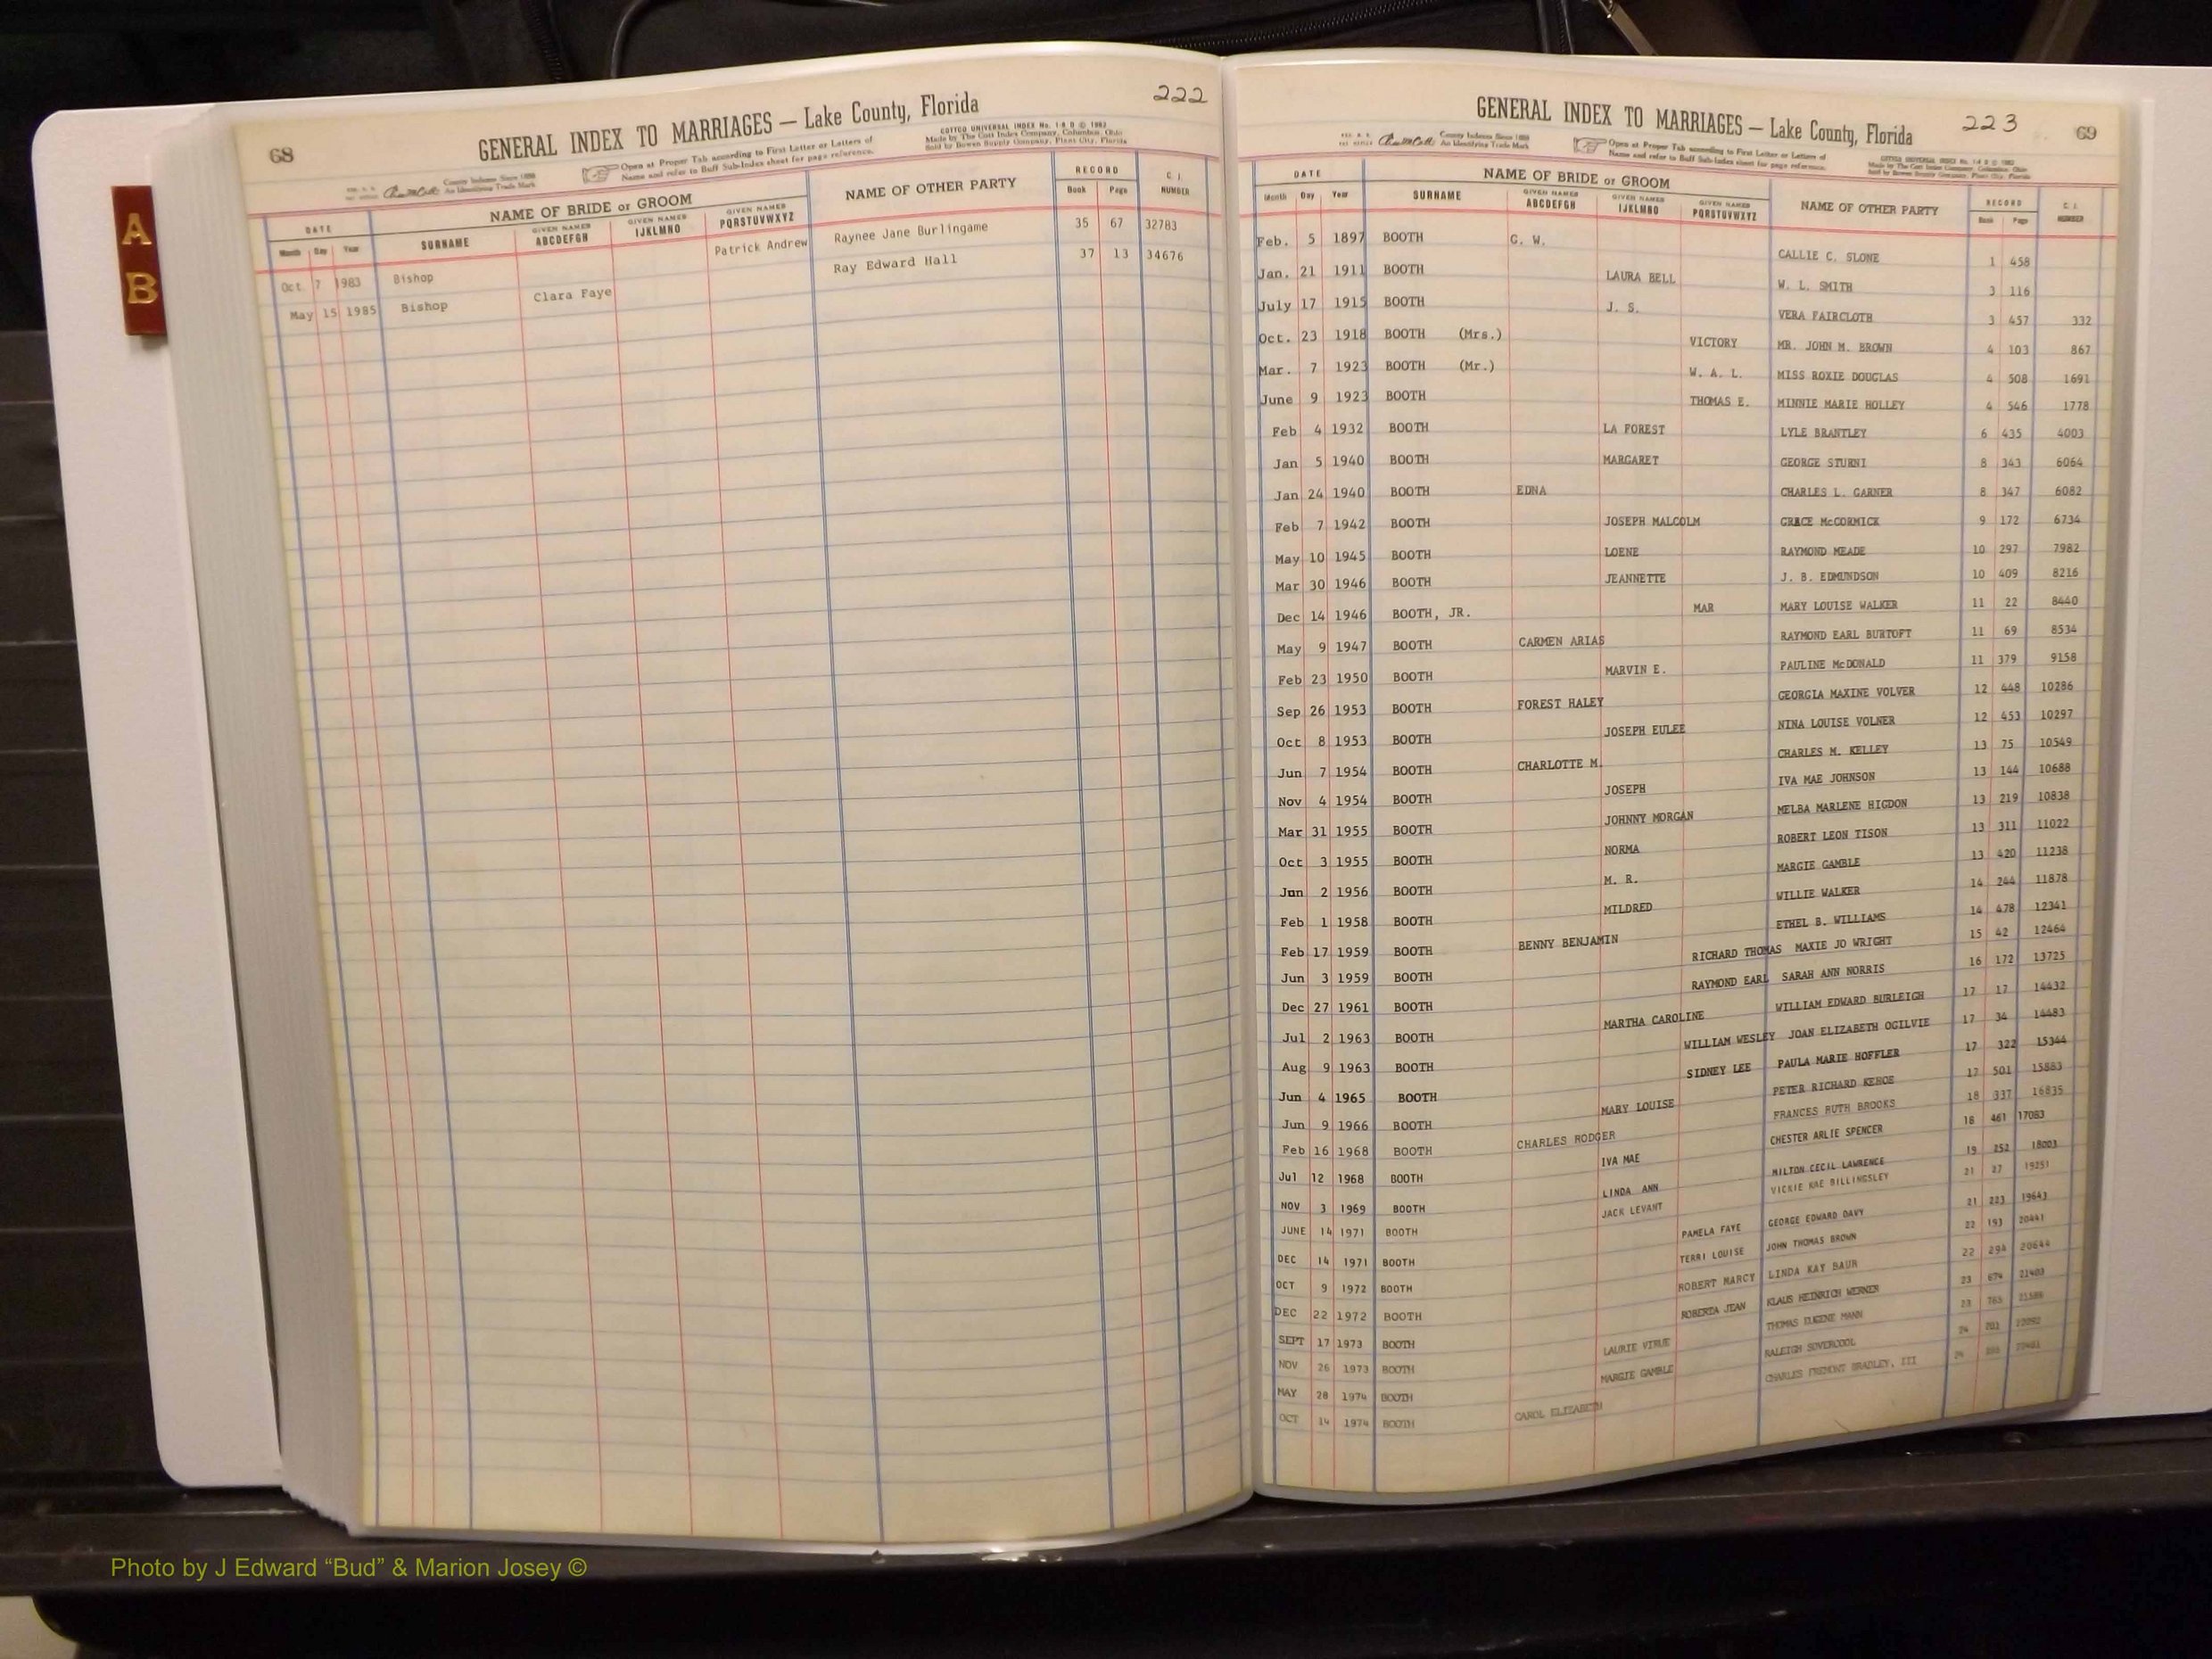 68
GENERAL INDEX TO MARRIAGES — Lake County, Florida
222
County Indexes Since 1888
An Identifying Trade Mark
Open at Proper Tab according to First Letter or Letters of
Name and refer to Buff Sub-Index sheet for page reference.
COTTCO UNIVERSAL INDEX No. 1-8 B © 1982
Made by The Cott Index Company, Columbus, Ohio
Sold by Bowen Supply Company, Plant City, Florida
DATE NAME OF BRIDE or GROOM NAME OF OTHER PARTY RECORD C. I. NUMBER
Month Day Year SURNAME GIVEN NAMES ABCDEFGH GIVEN NAMES IJKLMNO GIVEN NAMES PQRSTUVWXYZ Book Page
Oct. 7 1983 Bishop Patrick Andrew Raynee Jane Burlingame 35 67 32783
May 15 1985 Bishop Clara Faye Ray Edward Hall 37 13 34676
GENERAL INDEX TO MARRIAGES — Lake County, Florida
223
69
County Indexes Since 1888
An Identifying Trade Mark
Open at Proper Tab according to First Letter or Letters of
Name and refer to Buff Sub-Index sheet for page reference.
COTTCO UNIVERSAL INDEX
Made by The Cott Index Company, Columbus, Ohio
Sold by Bowen Supply Company, Plant City, Florida
DATE NAME OF BRIDE or GROOM NAME OF OTHER PARTY RECORD C. I. NUMBER
Month Day Year SURNAME GIVEN NAMES ABCDEFGH GIVEN NAMES IJKLMNO GIVEN NAMES PQRSTUVWXYZ Book Page
Feb. 5 1897 BOOTH C. W. CALLIE C. SLONE 1 458
Jan. 21 1911 BOOTH LAURA BELL W. L. SMITH 3 116
July 17 1915 BOOTH J. S. VERA FAIRCLOTH 3 457 332
Oct. 23 1918 BOOTH (Mrs.) VICTORY MR. JOHN M. BROWN 4 103 867
Mar. 7 1923 BOOTH (Mr.) W. A. L. MISS ROXIE DOUGLAS 4 508 1691
June 9 1923 BOOTH THOMAS E. MINNIE MARIE HOLLEY 4 546 1778
Feb 4 1932 BOOTH LA FOREST LYLE BRANTLEY 6 435 4003
Jan 5 1940 BOOTH MARGARET GEORGE STURNI 8 343 6064
Jan 24 1940 BOOTH EDNA CHARLES L. GARNER 8 347 6082
Feb 7 1942 BOOTH JOSEPH MALCOLM GRACE McCORMICK 9 172 6734
May 10 1945 BOOTH LOENE RAYMOND MEADE 10 297 7982
Mar 30 1946 BOOTH JEANNETTE J. B. EDMUNDSON 10 409 8216
Dec 14 1946 BOOTH, JR. MAR MARY LOUISE WALKER 11 22 8440
May 9 1947 BOOTH CARMEN ARIAS RAYMOND EARL BURTOFT 11 69 8534
Feb 23 1950 BOOTH MARVIN E. PAULINE McDONALD 11 379 9158
Sep 26 1953 BOOTH FOREST HALEY GEORGIA MAXINE VOLVER 12 448 10286
Oct 8 1953 BOOTH JOSEPH EULEE NINA LOUISE VOLNER 12 453 10297
Jun 7 1954 BOOTH CHARLOTTE M. CHARLES M. KELLEY 13 75 10549
Nov 4 1954 BOOTH JOSEPH IVA MAE JOHNSON 13 144 10688
Mar 31 1955 BOOTH JOHNNY MORGAN MELBA MARLENE HIGDON 13 219 10838
Oct 3 1955 BOOTH NORMA ROBERT LEON TISON 13 311 11022
Jun 2 1956 BOOTH M. R. MARGIE GAMBLE 13 420 11238
Feb 1 1958 BOOTH MILDRED WILLIE WALKER 14 244 11878
Feb 17 1959 BOOTH BENNY BENJAMIN ETHEL B. WILLIAMS 14 478 12341
Jun 3 1959 BOOTH RICHARD THOMAS MAXIE JO WRIGHT 15 42 12464
Dec 27 1961 BOOTH RAYMOND EARL SARAH ANN NORRIS 16 172 13725
Jul 2 1963 BOOTH MARTHA CAROLINE WILLIAM EDWARD BURLEIGH 17 17 14432
Aug 9 1963 BOOTH WILLIAM WESLEY JOAN ELIZABETH OGILVIE 17 34 14483
Jun 4 1965 BOOTH SIDNEY LEE PAULA MARIE HOFFLER 17 322 15344
Jun 9 1966 BOOTH MARY LOUISE PETER RICHARD KEHOE 17 501 15883
Feb 16 1968 BOOTH CHARLES RODGER FRANCES RUTH BROOKS 18 337 16835
Jul 12 1968 BOOTH IVA MAE CHESTER ARLIE SPENCER 18 461 17083
NOV 3 1969 BOOTH LINDA ANN MILTON CECIL LAWRENCE 19 252 18003
JUNE 14 1971 BOOTH JACK LEVANT VICKIE RAE BILLINGSLEY 21 27 19251
DEC 14 1971 BOOTH PAMELA FAYE GEORGE EDWARD DAVY 21 223 19643
OCT 9 1972 BOOTH TERRI LOUISE JOHN THOMAS BROWN 22 193 20441
DEC 22 1972 BOOTH ROBERT MARCY LINDA KAY BAUR 22 294 20644
SEPT 17 1973 BOOTH ROBERTA JEAN KLAUS HEINRICH WERNER 23 674 21403
NOV 26 1973 BOOTH LAURIE VIRUE THOMAS EUGENE MANN 23 765
MAY 28 1974 BOOTH MARGIE GAMBLE RALEIGH SOVERCOOL 24 201
OCT 14 1974 BOOTH CAROL ELIZABETH CHARLES FREMONT BRADLEY, III 24
A
B
Photo by J Edward “Bud” & Marion Josey ©